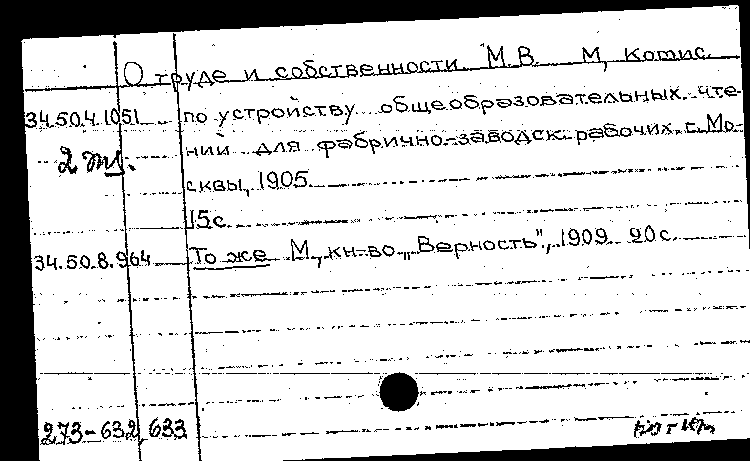 О труде и собственности. М.В. М, Комис.
34.50.4.1051 по устройству общеобразовательных чте-
2 экз. ний для фабрично-заводск. рабочих г. Мо-
сквы, 1905
15с
34.50.8.964 То же М., кн-во „Верность", 1909. 20 с.
273-632,633